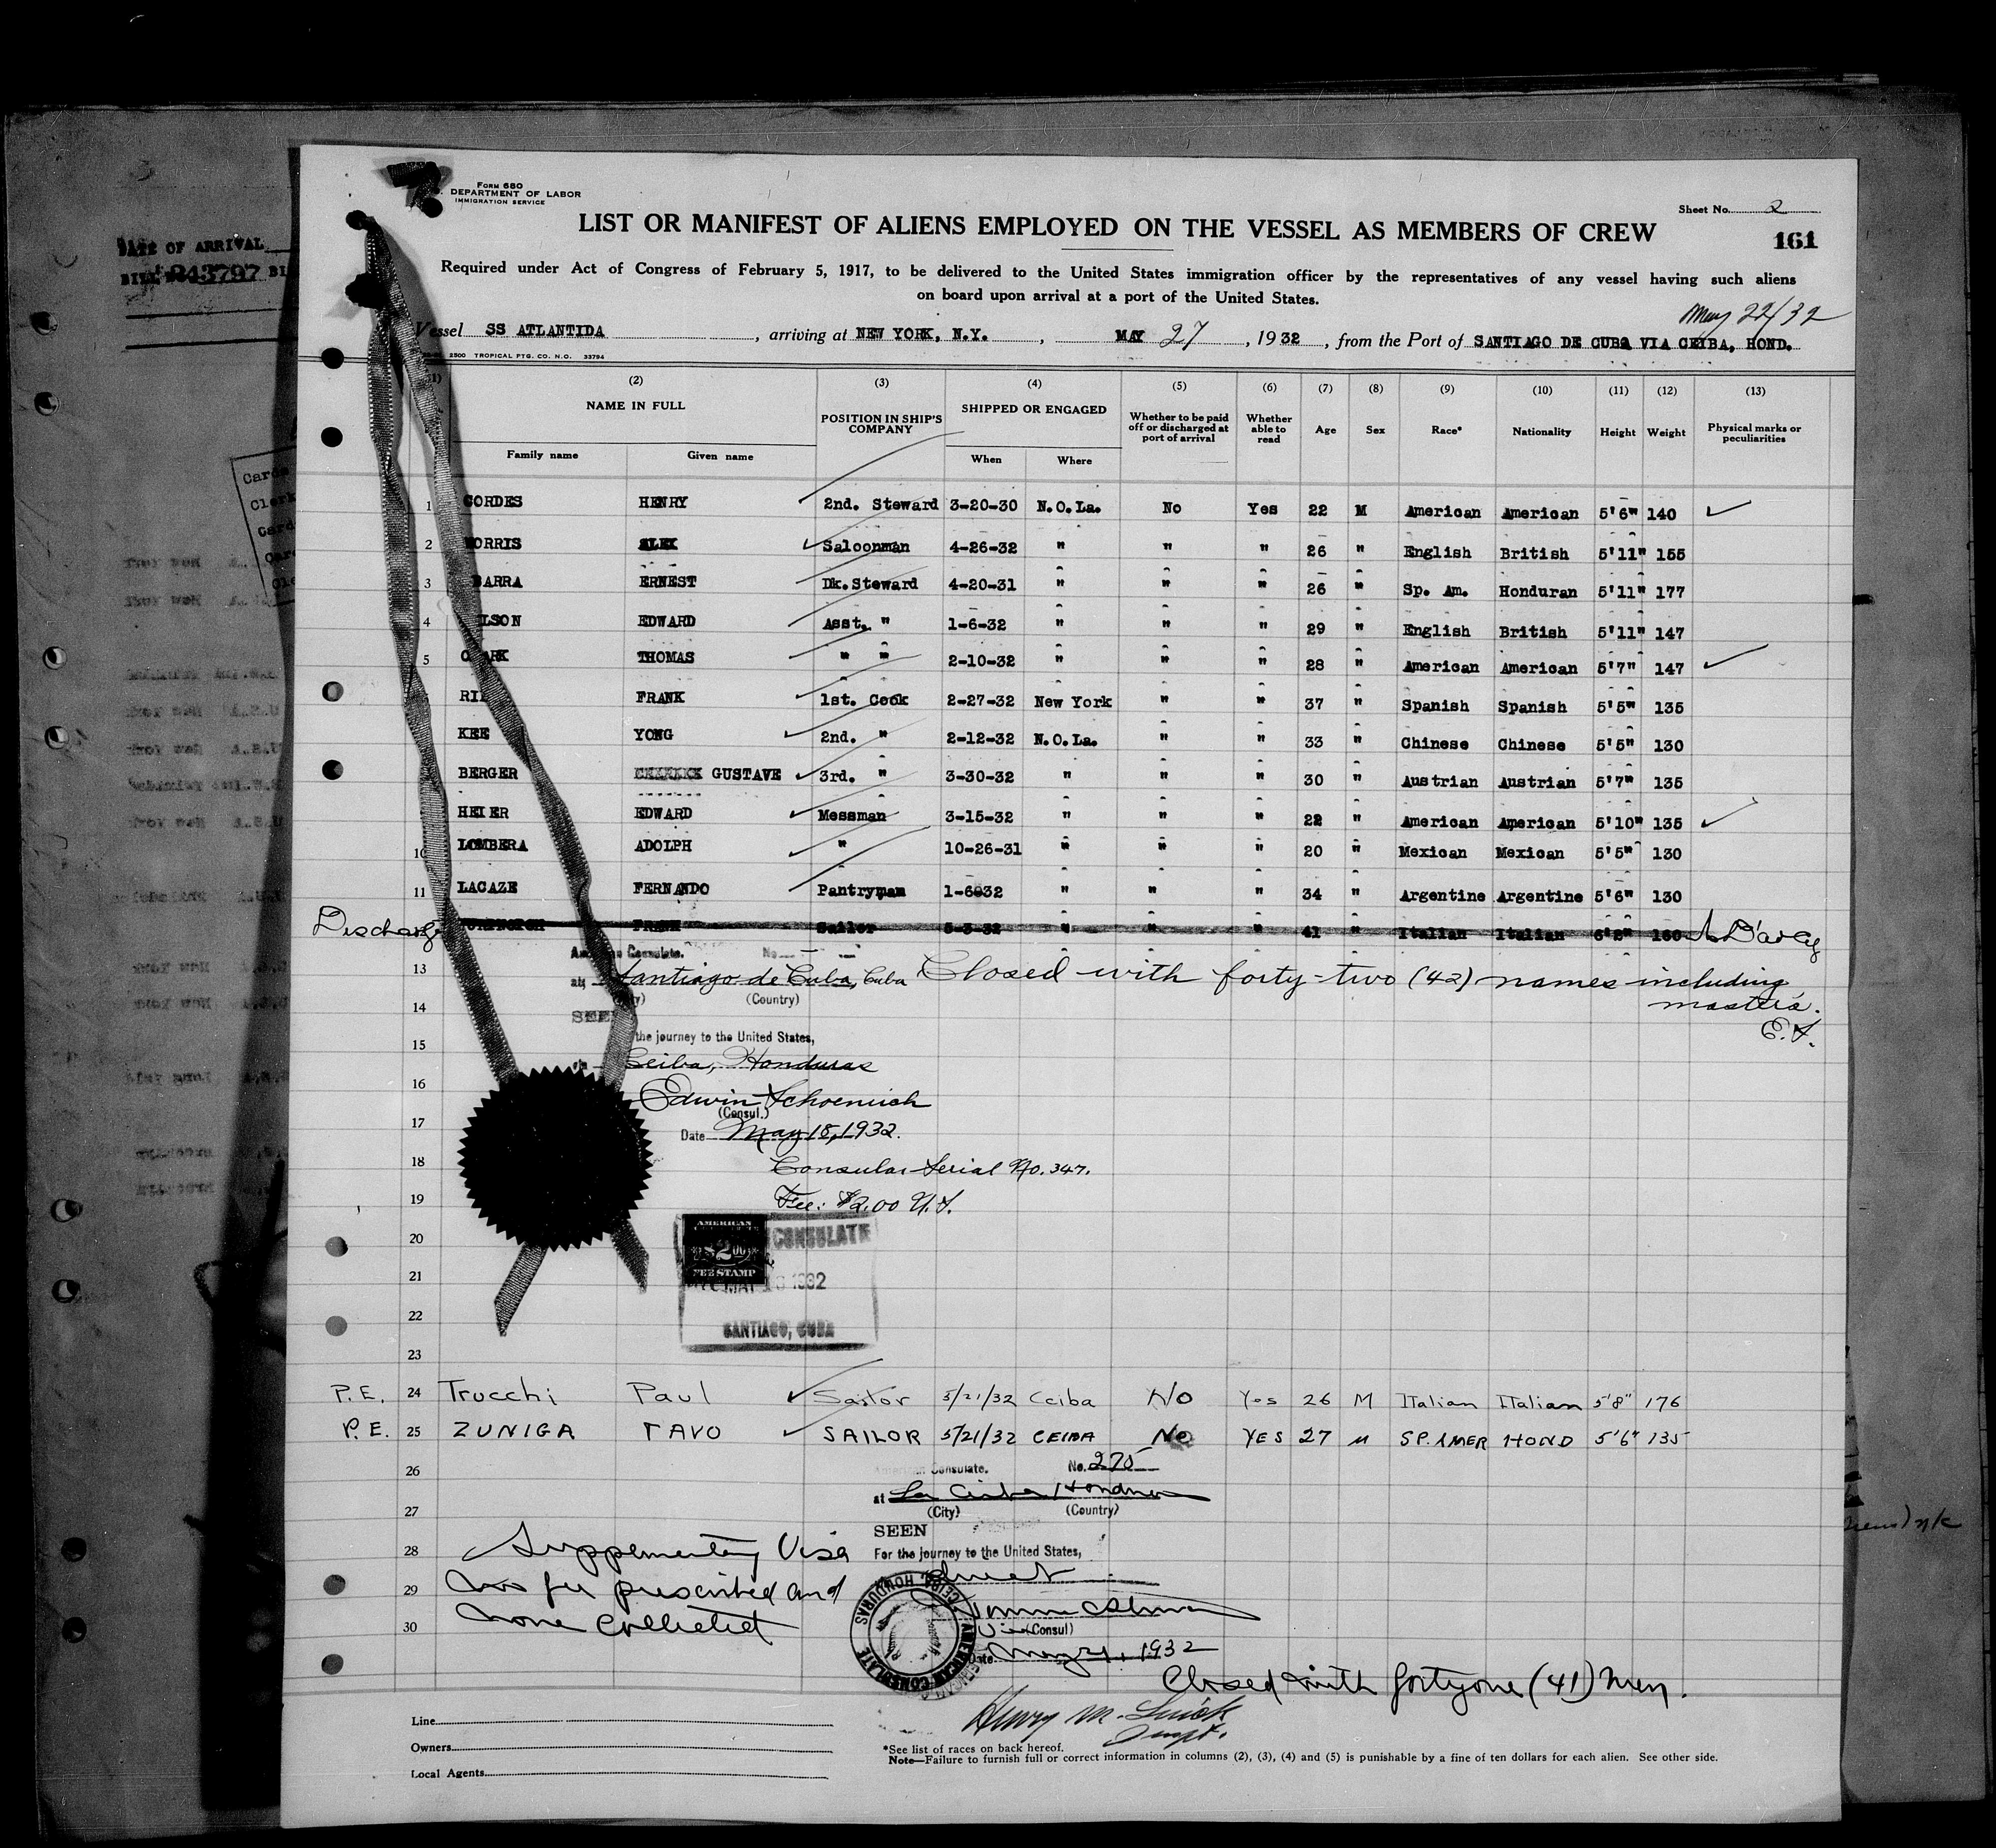 Form 680
DEPARTMENT OF LABOR
IMMIGRATION SERVICE
Sheet No. 2
LIST OR MANIFEST OF ALIENS EMPLOYED ON THE VESSEL AS MEMBERS OF CREW
161
Required under Act of Congress of February 5, 1917, to be delivered to the United States immigration officer by the representatives of any vessel having such aliens
on board upon arrival at a port of the United States.
May 22/32
Vessel SS ATLANTIDA, arriving at NEW YORK, N.Y., MAY 27, 1932, from the Port of SANTIAGO DE CUBA VIA CEIBA, HOND.
2500 TROPICAL PTG. CO. N.O. 33794
(1) (2) (3) (4) (5) (6) (7) (8) (9) (10) (11) (12) (13)
NAME IN FULL POSITION IN SHIP'S COMPANY SHIPPED OR ENGAGED Whether to be paid off or discharged at port of arrival Whether able to read Age Sex Race* Nationality Height Weight Physical marks or peculiarities
Family name Given name When Where
1 CORDES HENRY 2nd. Steward 3-20-30 N.O.La. No Yes 22 M American American 5'6" 140
2 MORRIS ALEX Saloonman 4-26-32 " " " 26 " English British 5'11" 155
3 BARRA ERNEST Dk.Steward 4-20-31 " " " 26 " Sp. Am. Honduran 5'11" 177
4 LSON EDWARD Asst. " 1-6-32 " " " 29 " English British 5'11" 147
5 CLARK THOMAS " " 2-10-32 " " " 28 " American American 5'7" 147
FRANK 1st. Cook 2-27-32 New York " " 37 " Spanish Spanish 5'5" 135
KEE YONG 2nd. " 2-12-32 N.O.La. " " 33 " Chinese Chinese 5'5" 130
BERGER GUSTAVE 3rd. " 3-30-32 " " " 30 " Austrian Austrian 5'7" 135
HEIER EDWARD Messman 3-15-32 " " " 22 " American American 5'10" 135
10 LOMBERA ADOLPH " 10-26-31 " " " 20 " Mexican Mexican 5'5" 130
11 LACAZE FERNANDO Pantryman 1-6032 " " " 34 " Argentine Argentine 5'6" 130
Discharge FRANK Sailor 5-3-32 " " " 41 " Italian Italian 160
American Consulate. No.
13 at Santiago de Cuba, Cuba Closed with forty-two (42) names including
(Country)
14 master's.
SEEN E.S.
15 the journey to the United States,
Ceiba, Honduras
16 Edwin Schoenrich
(Consul.)
17 Date May 18, 1932.
18 Consular Serial No. 347.
19 Fee: $2.00 U.S.
20 AMERICAN CONSULATE
$2.00
21 FEE STAMP
MAY 18 1932
22 SANTIAGO, CUBA
23
P.E. 24 Trucchi Paul Sailor 5/21/32 Ceiba No Yes 26 M Italian Italian 5'8" 176
P.E. 25 ZUNIGA TAVO SAILOR 5/21/32 CEIBA No YES 27 M SP. AMER HOND 5'6" 135
26 American Consulate. No. 270
at La Ceiba Honduras
27 (City) (Country)
SEEN
28 Supplementary Visa For the journey to the United States,
29 no fee prescribed and direct
30 none collected
AMERICAN CONSULATE CEIBA, HONDURAS
Vice (Consul)
Date May 21, 1932
Closed with forty one (41) Men.
Line
Owners
Local Agents
*See list of races on back hereof.
Note—Failure to furnish full or correct information in columns (2), (3), (4) and (5) is punishable by a fine of ten dollars for each alien. See other side.
DATE OF ARRIVAL
243797